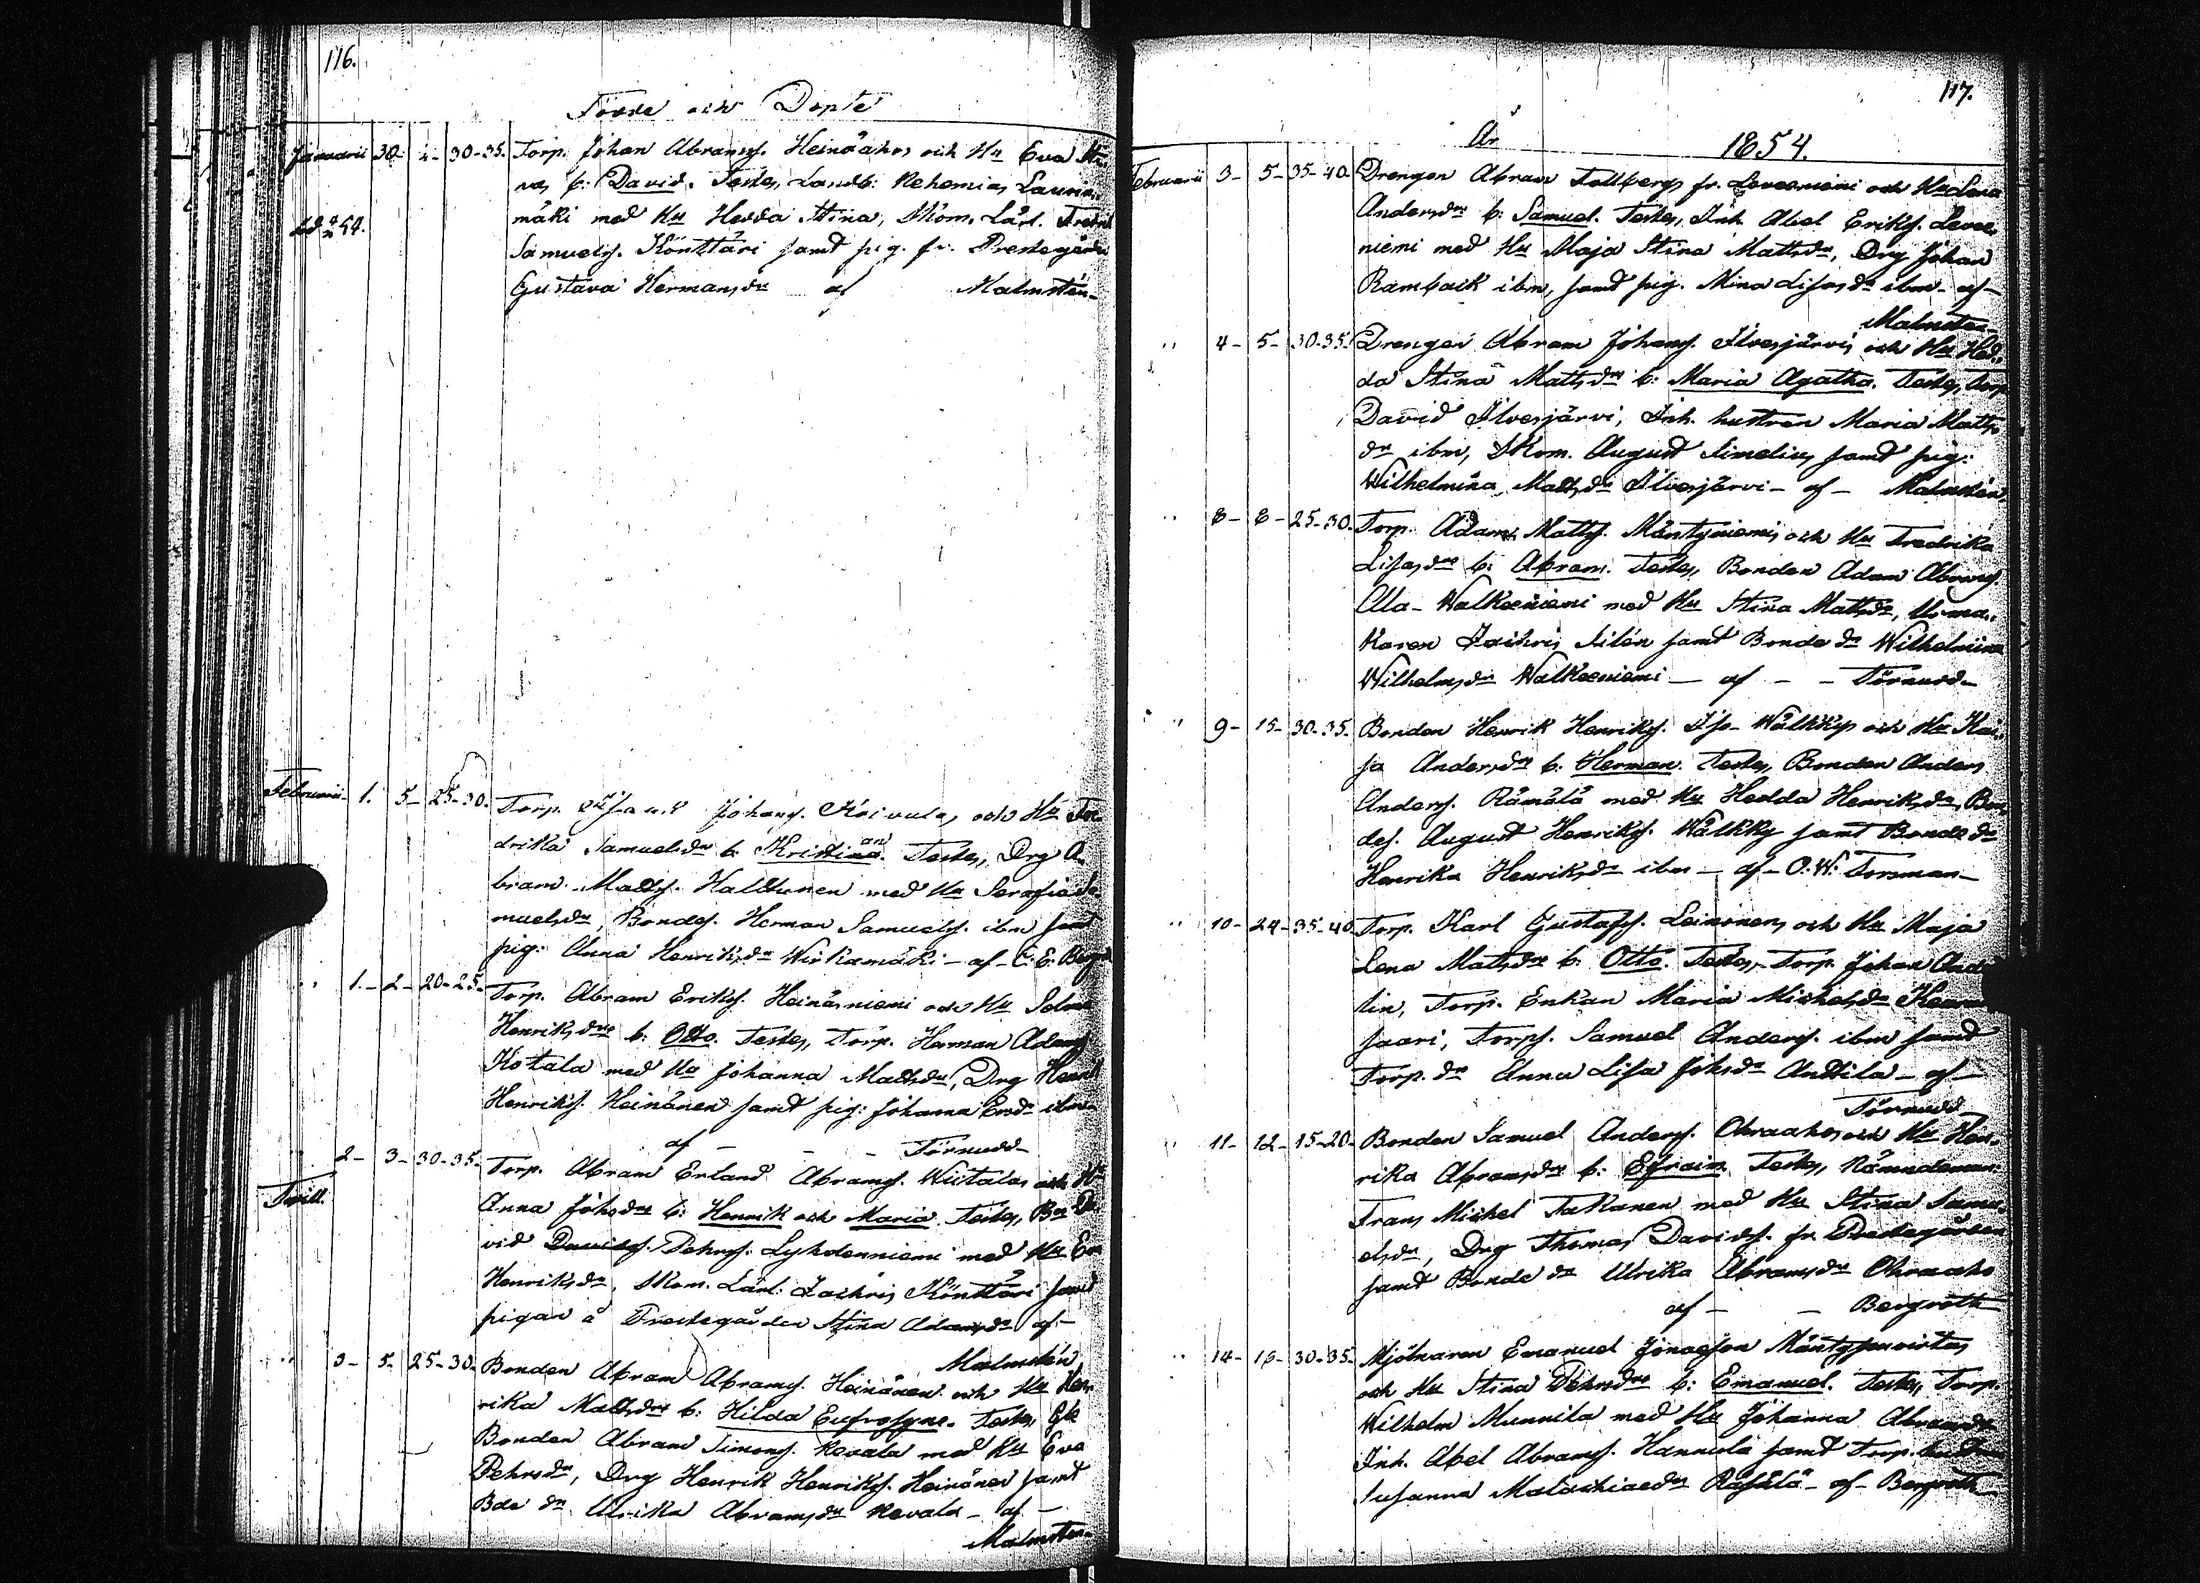 116.
Födde och Döpte
Januarii 30- 2- 30-35. Torp. Johan Abramss. Heinäahos och Hu Eva
nas b: David. Testes, Landb: Nehemias Lauria
mäki med Hu Hedda Stina, Skom. Lärl. Fredrik
Samuelss. Könttäri samt pig. fr. Prestegården
Gustava Hermansdr af Malmstén-
Februarii 1. 5- 25-30. Torp. Isaak Johanss. Koivulas och Hu Fre
drika Samuelsdrs b. Kristian. Testes, Drg A
bram Matts. Halttunen med Hu Serafia Sa
muelsdr, Bondes. Herman Samuelss. ibm samt
pig: Anna Henriksdr Wirkamäki- af- C. E. Bergr
" 1.- 2- 20-25- Torp. Abram Erikss. Heinäsniemi och Hu
Henriksdrs b: Otto. Testes, Torp. Herman Adamss
Kotala med Hu Johanna Mattsdr, Drg Henrik
Henrikss. Heinänen samt pig: Johanna Ersdr ibm-
af - - Törnudd-
2- 3- 30-35- Torp. Abram Erland Abramss. Wiitalas och Hu
Twill. Anna Johsdrs b: Henrik och Maria. Testes, Bn Da
vid Davidss. Pehrss. Lyhdenniemi med Hu Eva
Henriksdr, Skom. Lärl: Zachris Könttäri samt
pigan å Prestegården Stina Adamsdr af-
Malmstén
" 3- 5- 25-30- Bonden Abram Abramss. Heinänen och Hu Hen
rika Mattsdrs b: Hilda Eufrosyne. Testes Gle
Bonden Abram Simonss. Kevala med Hu Eva
Pehrsdr, Drg Henrik Henrikss. Heinänen samt
Bde dr Ulrika Abramsdr Kevala- af-
Malmstén-
117.
År 1854.
Februarii 3- 5- 35-40- Drengen Abram Tallbergs fr. Leveeniemi och Hu Lena
Andersdrs b: Samuel. Testes, Inh. Abel Erikss. Levee
niemi med Hu Maja Stina Mattsdr, Drg Johan
Rambaik ibm, samt pig. Mina Lisasdr ibm- af-
Malmstén-
" 4- 5- 30-35. Drengen Abram Johanss. Ilvesjärvis och Hu Hed
da Stina Mattsdrs b: Maria Agatha. Testes, Torp
David Ilvesjärvi, Inh. hustrun Maria Matts
dr ibm, Skom. August Simelius samt pig:
Wilhelmina Mattsdr Ilvesjärvi- af- Malmstén
" 8- 8- 25-30. Torp. Adam Mattss. Mäntyniemis och Hu Fredrika
Lisasdrs b: Abram. Testes, Bonden Adam Abramss
Ala-Walkeeniemi med Hu Stina Mattsdr, Urma
karen Zachris Silén samt Bonde dr Wilhelmina
Wilhelmsdr Walkeeniemi - af - - Törnudd-
" 9- 15- 30-35. Bonden Henrik Henrikss. Iso-Wälkkys och Hu Kai
sa Andersdrs b: Herman. Testes, Bonden Anders
Anderss. Rämälä med Hu Hedda Henriksdr, Bon
des. August Henrikss. Wälkky samt Bonde dr
Henrika Henriksdr ibm - af- O. W. Forsman-
" 10- 24- 35-40 Torp. Karl Gustafss. Leinonens och Hu Maja
Lena Mattsdrs b: Otto. Testes, Torp. Johan
lin, Torp. Enkan Maria Michelsdr
saari, Torps. Samuel Anderss. ibm samt
Torp. dr Anna Lisa Johsdr Anttila- af-
Törnudd
" 11- 12- 15-20- Bonden Samuel Anderss. Ohraahos och Hu Hen
rika Abramsdrs b: Efraim. Testes, Nämndeman
Frans Michel Takanen med Hu Stina Samu
elsdr, Drg Thomas Davidss. fr. Prestegården
samt Bonde dr Ulrika Abramsdr Ohraaho
af - - Bergroth
" 14- 16- 30-35. Mjölnaren Emanuel Jonasson Mäntysenvirtas
och Hu Stina Pehrsdrs b: Emanuel. Testes, Torp.
Wilhelm Munnila med Hu Johanna Abramsdr
Inh. Abel Abramss. Hannula samt Torp.
Susanna Malachiaedr Räsälä- af- Bergroth